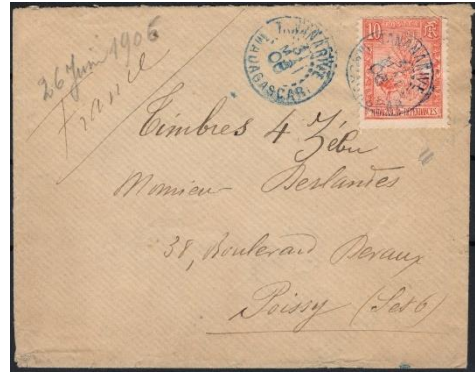 26 Juin 1906
France
TANANARIVE
MADAGASCAR
10
Timbres 4 Zébu
Monsieur Deslandes
38, Boulevard Devaux
Poissy (Set 6)